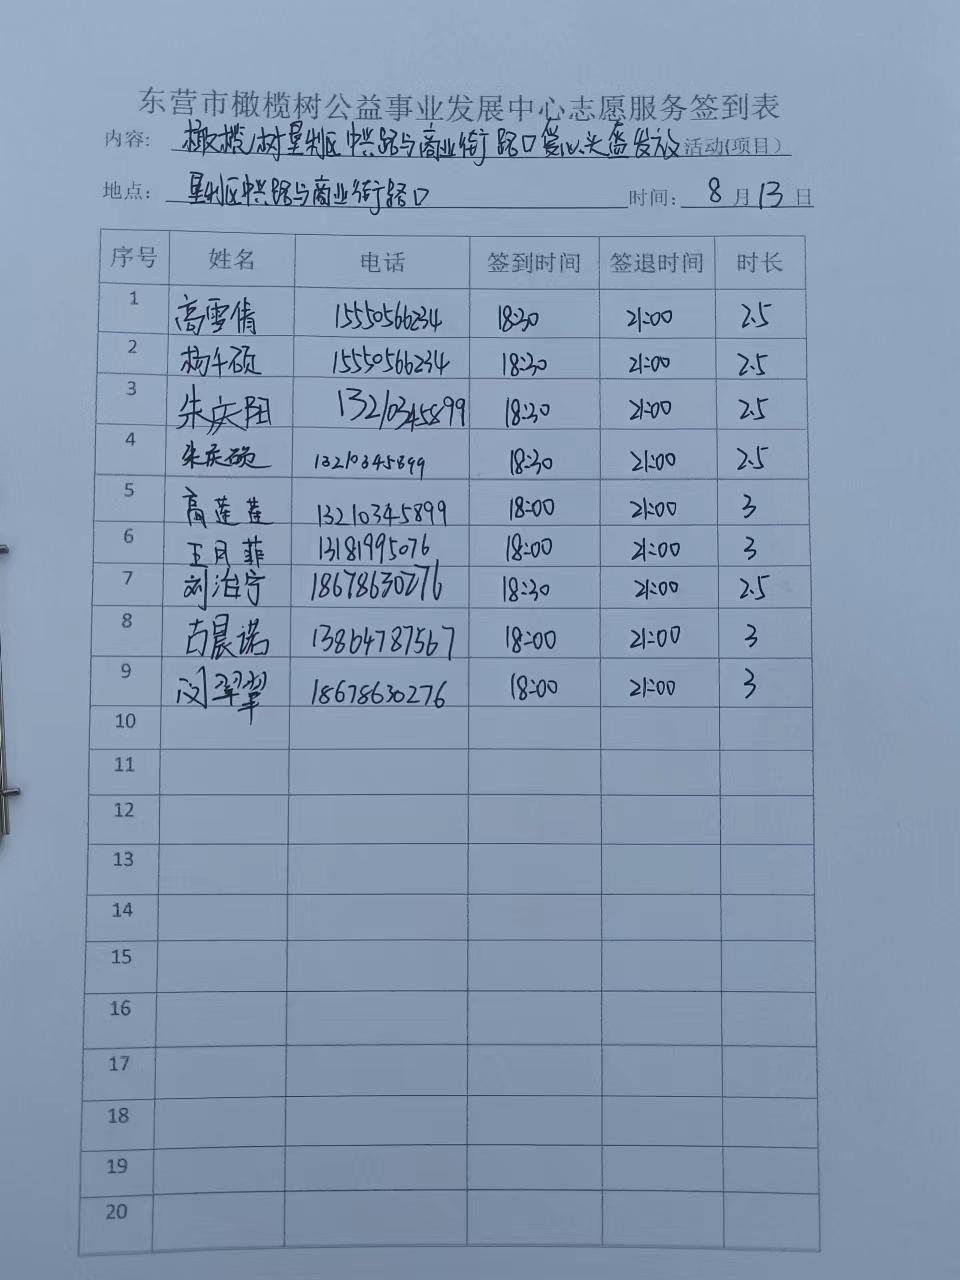 东营市橄榄树公益事业发展中心志愿服务签到表
内容: 橄榄树垦利区中兴路与商业街路口爱心头盔发放活动(项目)
地点: 垦利区中兴路与商业街路口 时间: 8月13日
序号 姓名 电话 签到时间 签退时间 时长
1 高雪倩 15550566234 18:30 21:00 2.5
2 杨千硕 15550566234 18:30 21:00 2.5
3 朱庆阳 13210345899 18:30 21:00 2.5
4 朱庆硕 13210345899 18:30 21:00 2.5
5 高莲莲 13210345899 18:00 21:00 3
6 王月菲 13181995076 18:00 21:00 3
7 刘治宇 18678630276 18:30 21:00 2.5
8 古晨诺 13864787567 18:00 21:00 3
9 闵翠翠 18678630276 18:00 21:00 3
10
11
12
13
14
15
16
17
18
19
20